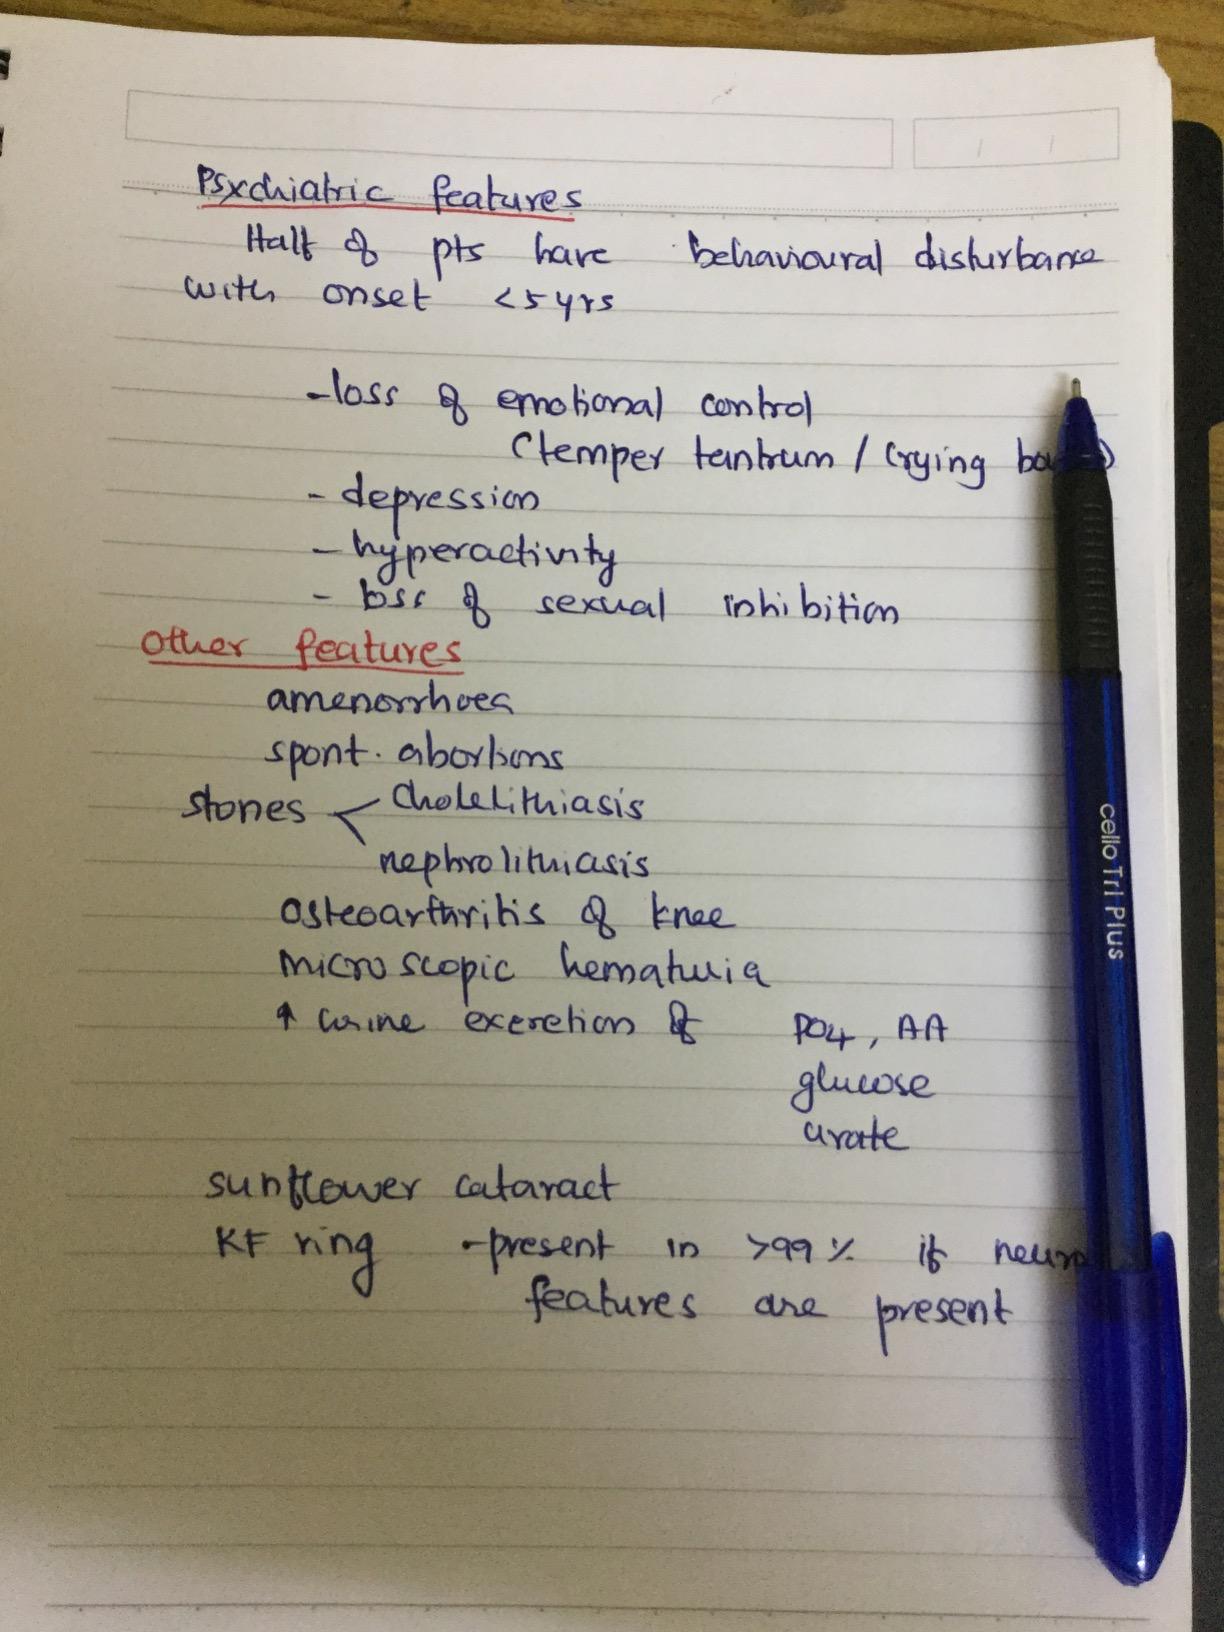 Psychiatric features
Half of pts have behavioural disturbance
with onset <5 yrs
-loss of emotional control
(temper tantrum / crying
- depression
- hyperactivity
- loss of sexual inhibition
Other features
amenorrhoea
spont. abortions
stones < Cholelithiasis
nephrolithiasis
Osteoarthritis of knee
microscopic hematuria
↑ urine excretion of PO4, AA
glucose
urate
sunflower cataract
KF ring - present in >99% if neuro
features are present
cello Tri Plus